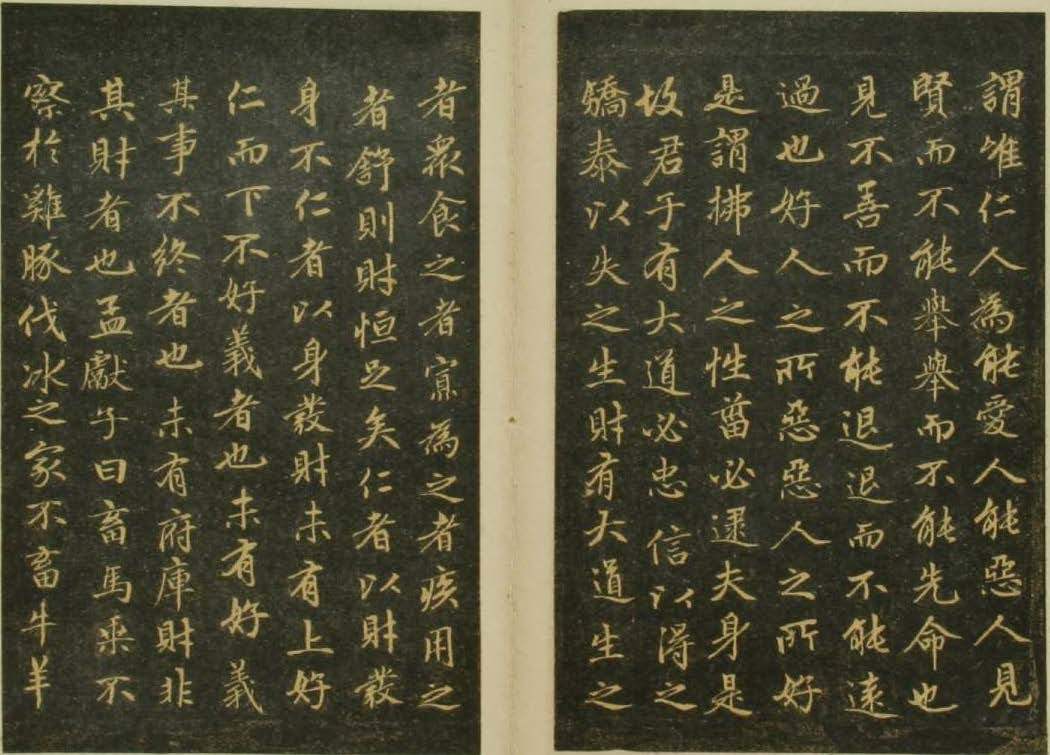 謂唯仁人為能愛人能惡人見
賢而不能舉舉而不能先命也
見不善而不能退退而不能遠
過也好人之所惡惡人之所好
是謂拂人之性菑必逮夫身是
故君子有大道必忠信以得之
驕泰以失之生財有大道生之
者眾食之者寡為之者疾用之
者舒則財恒足矣仁者以財發
身不仁者以身發財未有上好
仁而下不好義者也未有好義
其事不終者也未有府庫財非
其財者也孟獻子曰畜馬乘不
察於雞豚伐冰之家不畜牛羊